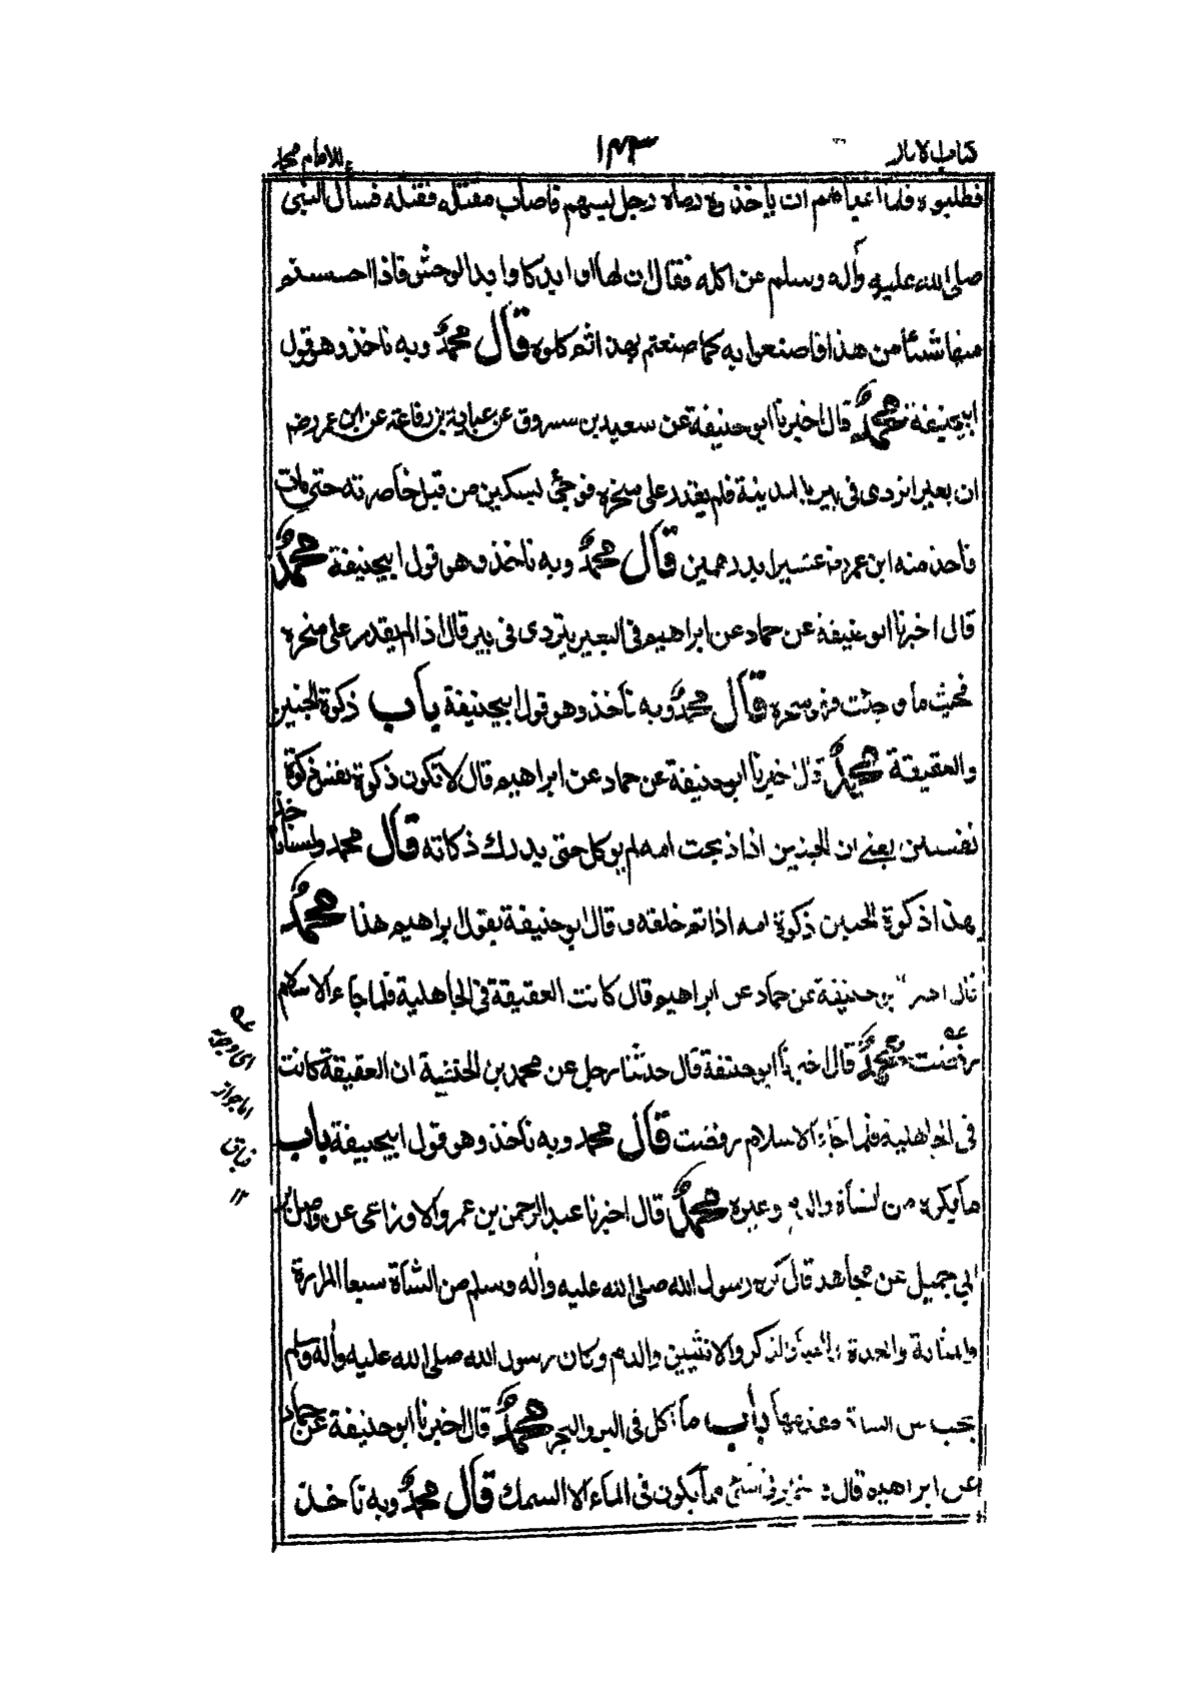 كتاب الاثار ١٤٣ للامام محمد
فطلبوه فلما اعياهم ان ياخذوه رماه رجل بسهم فاصاب مقتله فقتله فسأل النبى
صلى الله عليه وأله وسلم عن اكله فقال ان لها اوابد كاوابد الوحش فاذا احسستم
منها شيئا من هذا فاصنعوا به كما صنعتم بهذا ثم كلوه قال محمد وبه ناخذ وهو قول
ابيحنيفة محمد قال اخبرنا ابو حنيفة عن سعيد بن مسروق عن عباية بن رفاعة عن ابن عمر رضـ
ان بعيرا تردى فى بير بالمدينة فلم يقدر على منحره فوجئ بسكين من قبل خاصرته حتى مات
فاخذ منه ابن عمر رضـ عشيرا بدرهمين قال محمد وبه ناخذ وهو قول ابيحنيفة محمد
قال اخبرنا ابو حنيفة عن حماد عن ابراهيم فى البعير يتردى فى بير قال اذا لم يقدر على منحره
فحيث ما وجئت فهو منحره قال محمد وبه نأخذ وهو قول ابيحنيفة باب ذكوة الجنين
والعقيقة محمد قال اخبرنا ابو حنيفة عن حماد عن ابراهيم قال لا تكون ذكوة نفس ذكوة
نفسين يعنے ان الجنين اذا ذبحت امه لم يوكل حتى يدرك ذكاته قال محمد ولسنا ناخذ
بهذا ذكوة الجنين ذكوة امه اذا تم خلقه وقال ابو حنيفة بقول ابراهيم هذا محمد
قال اخبرنا ابو حنيفة عن حماد عن ابراهيم قال كانت العقيقة فى الجاهلية فلما جاء الاسلام
رفضت محمد قال اخبرنا ابو حنيفة قال حدثنا رجل عن محمد بن الحنفية ان العقيقة كانت
فى الجاهلية فلما جاء الاسلام رفضت قال محمد وبه نأخذ وهو قول ابيحنيفة باب
ما يكره من الشاة والدم وغيره محمد قال اخبرنا عبد الرحمن بن عمرو الاوزاعى عن واصل بن
ابي جميل عن مجاهد قال كره رسول الله صلى الله عليه وأله وسلم من الشاة سبعا المرارة
والمثانة والغدة والحيا والذكر والانثيين والدم وكان رسول الله صلى الله عليه وأله وسلم
يحب من الشاة مقدمها باب ما اكل فى البر والبحر محمد قال اخبرنا ابو حنيفة عن حماد
عن ابراهيم قال لا خير فى شئ مما يكون فى الماء الا السمك قال محمد وبه نأخذ
اى وجوبه
اما جواز
باق
١٢